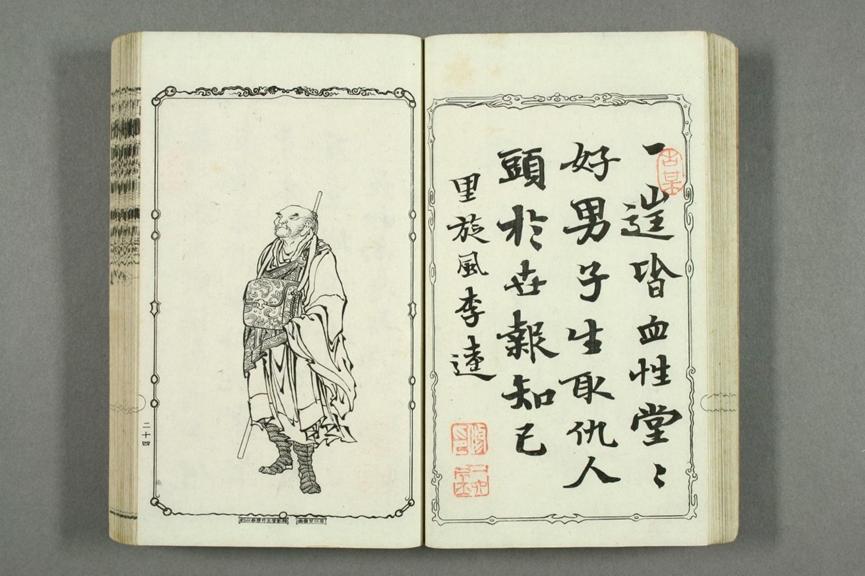 一皆血性堂〻
好男子生取仇人
頭於世報知己
里旋風李逵
二十四